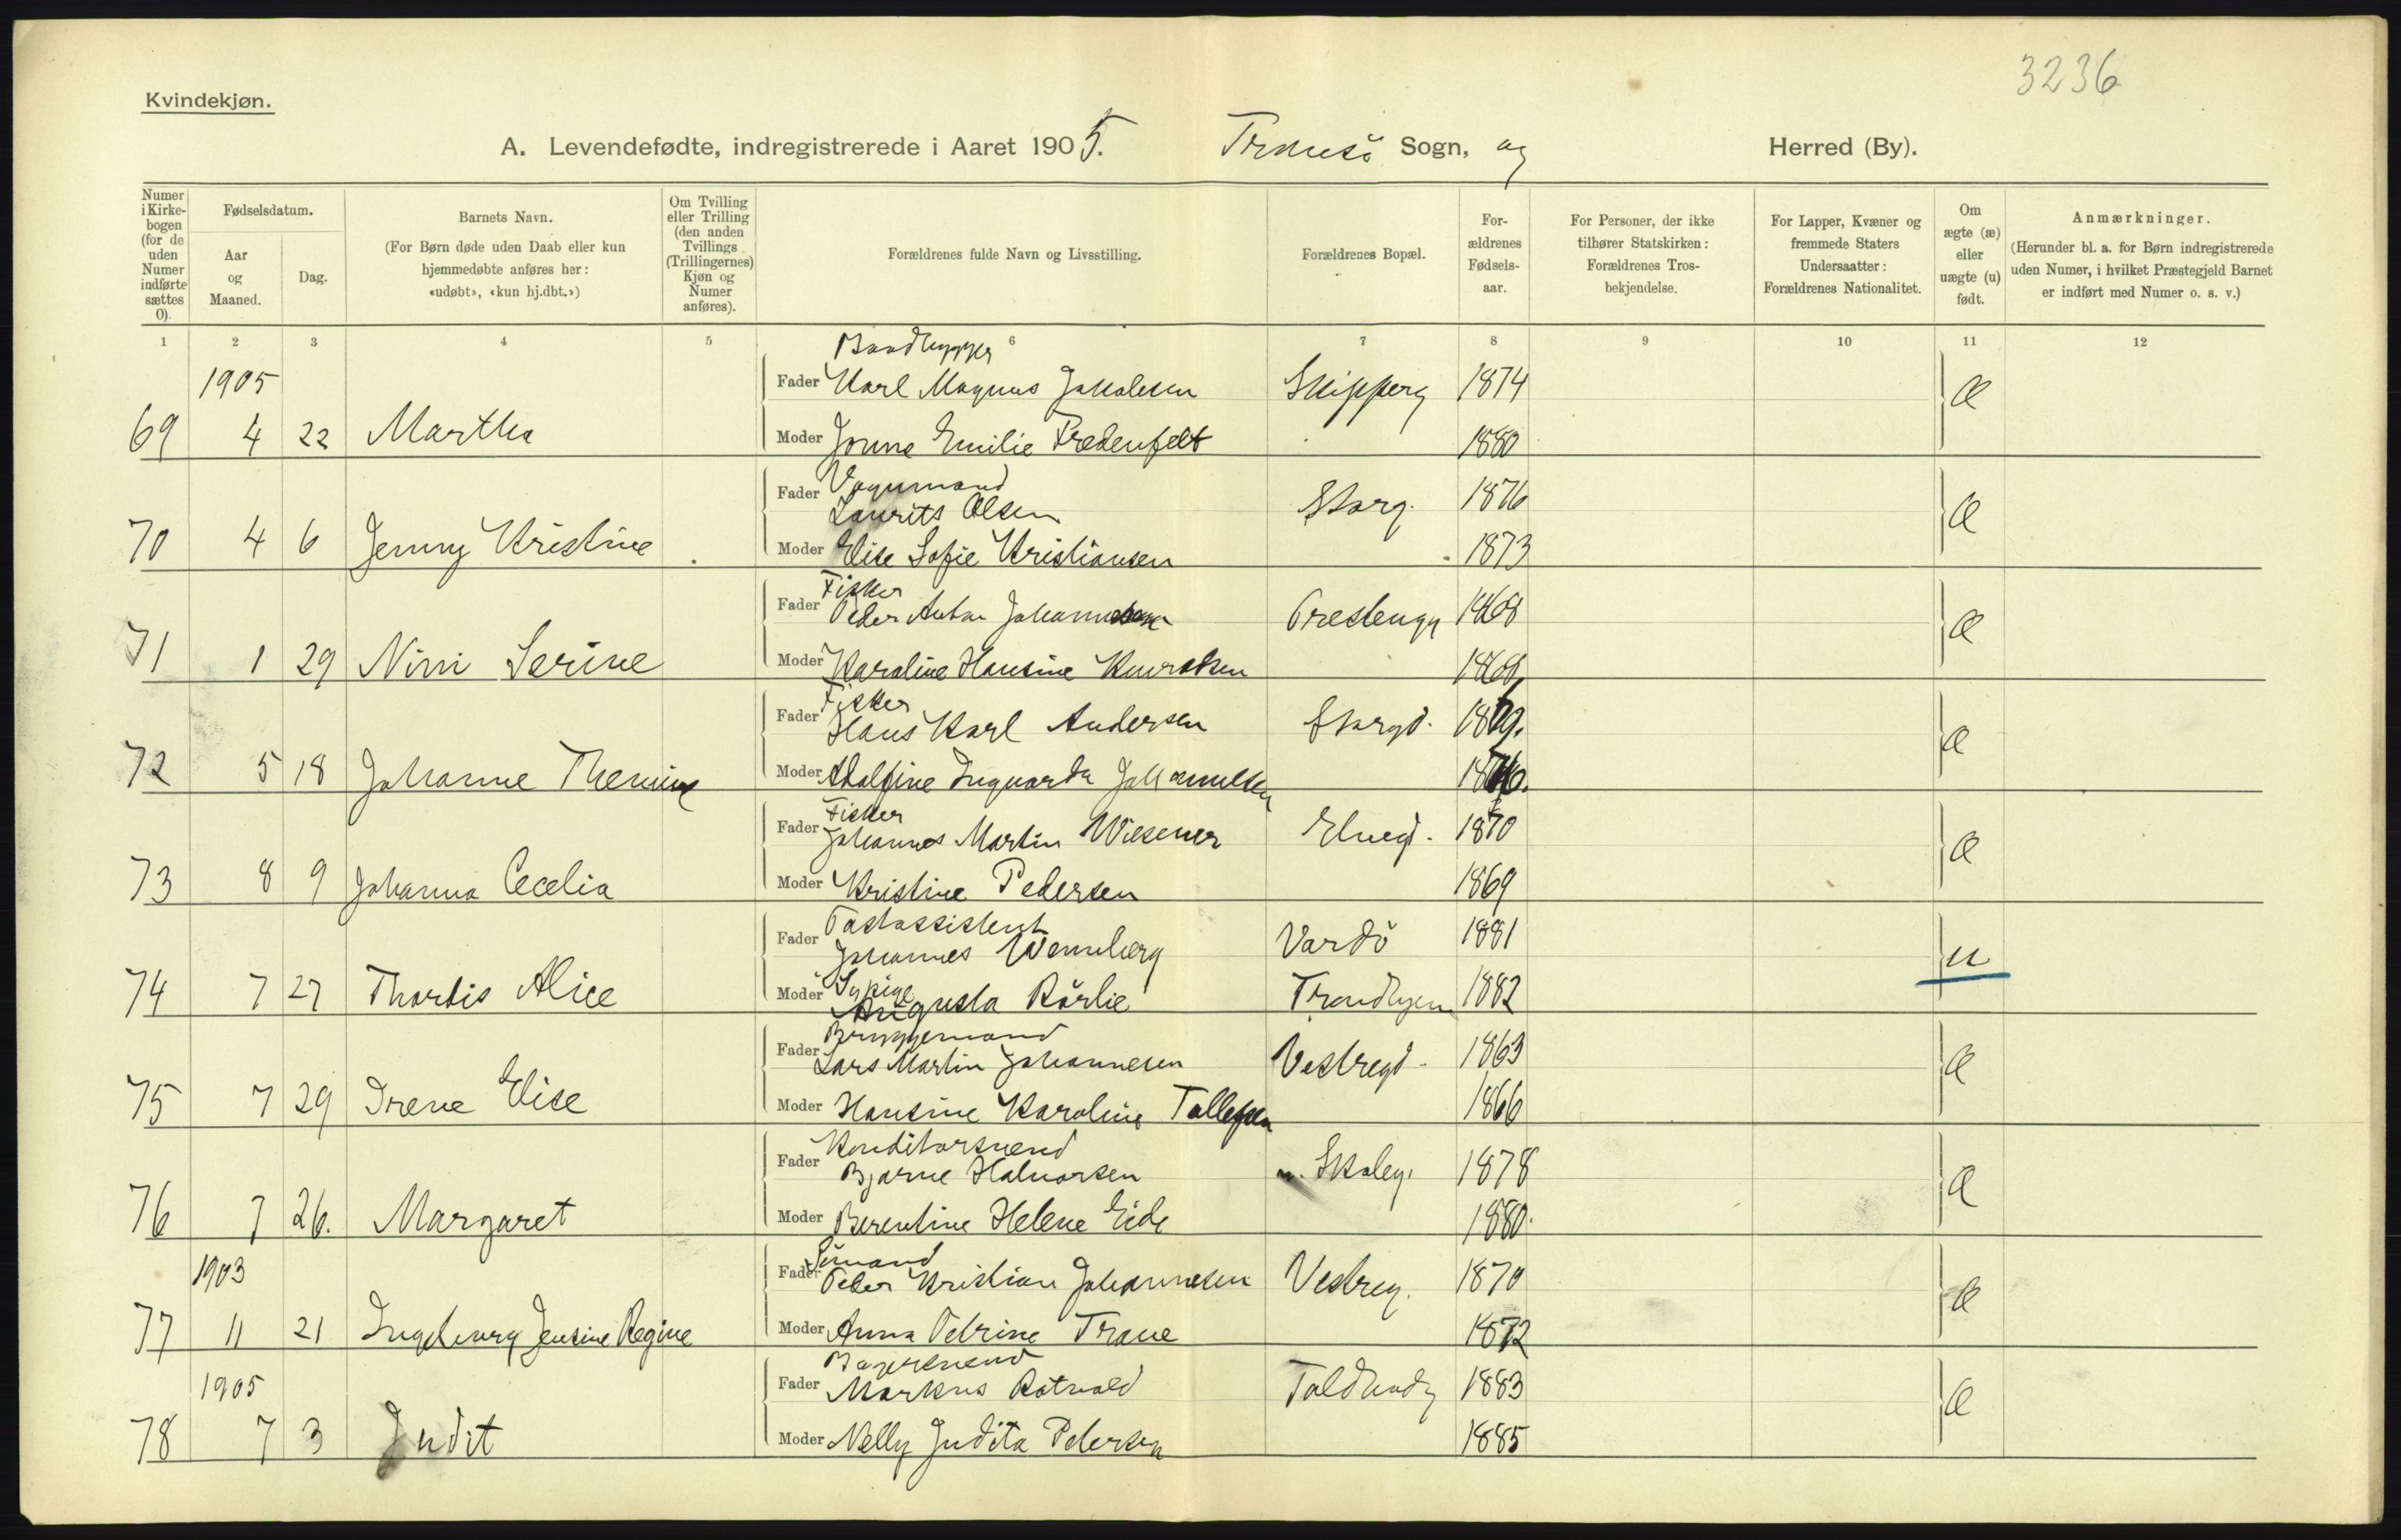 3236
Kvindekjøn.
A. Levendefødte, indregistrerede i Aaret 1905. Tromsö Sogn, og Herred (By).
Numer i Kirkebogen (for de uden Numer indførte sættes 0).
Fødselsdatum.
Aar og Maaned.
Dag.
Barnets Navn.
(For Børn døde uden Daab eller kun hjemmedøbte anføres her: «udøbt», «kun hj.dbt.»)
Om Tvilling eller Trilling (den anden Tvillings (Trillingernes) Kjøn og Numer anføres).
Forældrenes fulde Navn og Livsstilling.
Forældrenes Bopæl.
Forældrenes Fødselsaar.
For Personer, der ikke tilhører Statskirken: Forældrenes Trosbekjendelse.
For Lapper, Kvæner og fremmede Staters Undersaatter: Forældrenes Nationalitet.
Om ægte (æ) eller uægte (u) født.
Anmærkninger.
(Herunder bl. a. for Børn indregistrerede uden Numer, i hvilket Præstegjeld Barnet er indført med Numer o. s. v.)
1 2 3 4 5 6 7 8 9 10 11 12
Baadbygger
1905 Fader Karl Magnus Jakobsen Skipperg 1874 Æ
69 4 22 Martha Moder Emilie 1880
Vognmand
Fader Laurits Olsen Storg. 1876 Æ
70 4 6 Jenny Kristine Moder Elise Sofie Kristiansen 1873
Fisker
Fader Peder Anton Johannesen Prestengg 1868 Æ
71 1 29 Nini Serine Moder Karoline Hansine 1868
Fisker
Fader Hans Karl Andersen Storgd. Æ
72 5 18 Johanne Moder Adolfine Ingvarda
Fisker
Fader Johannes Martin Wiesener Elvegd. 1870 Æ
73 8 9 Johanna Cecelia Moder Kristine Pedersen 1869
Postassistent
Fader Johannes Wennberg Vardö 1881 u
Sypige
74 7 27 Thordis Alice Moder Augusta Rörlie Trondhjem 1882
Bryggemand
Fader Lars Martin Johannesen Vestregd. 1863 Æ
75 7 29 Irene Elise Moder Hansine Karoline Tollefsen 1866
Konditorsvend
Fader Bjarne Halvorsen n. Skoleg. 1878 Æ
76 7 26. Margaret Moder Berentine Helene Eide 1880.
Sömand
1903 Fader Peder Kristian Johannesen Vestreg. 1870 Æ
77 11 21 Ingeborg Jensine Regine Moder Anna Petrine Trane 1872
Bagersvend
1905 Fader Markus Rotvold Toldbodg 1883 Æ
78 7 3 Judit Moder Nelly Judita Petersen 1885